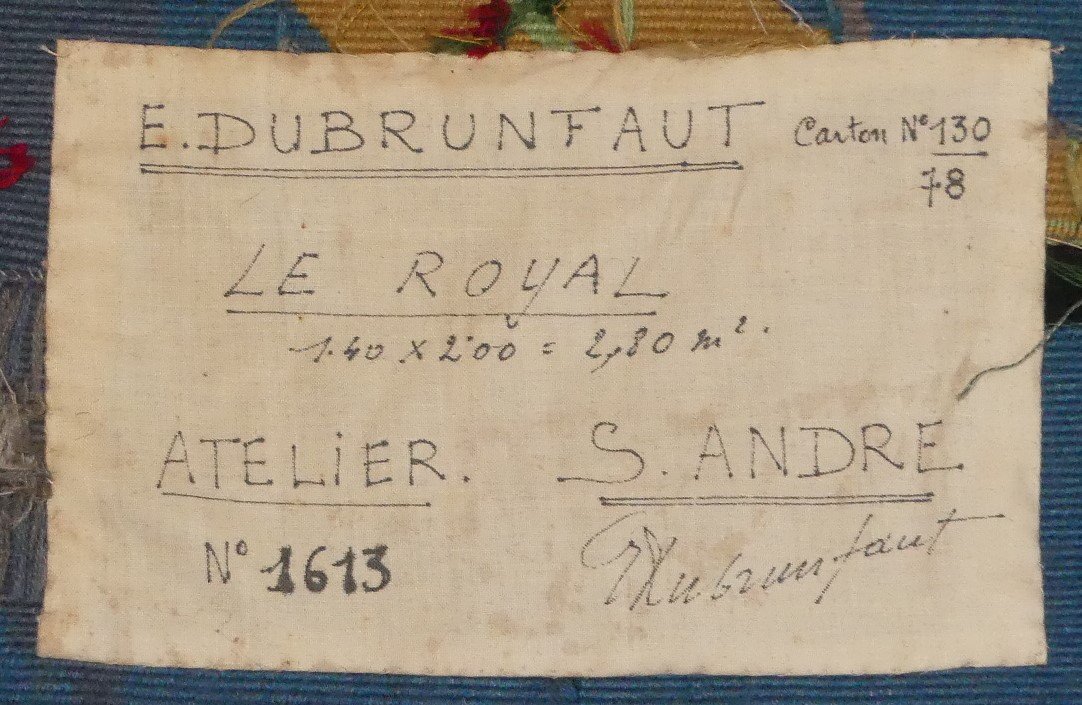 E. DUBRUNFAUT Carton N° 130
78
LE ROYAL
1.40 x 2.00 = 2,80 m².
ATELIER. S. ANDRE
N° 1613 EDubrunfaut